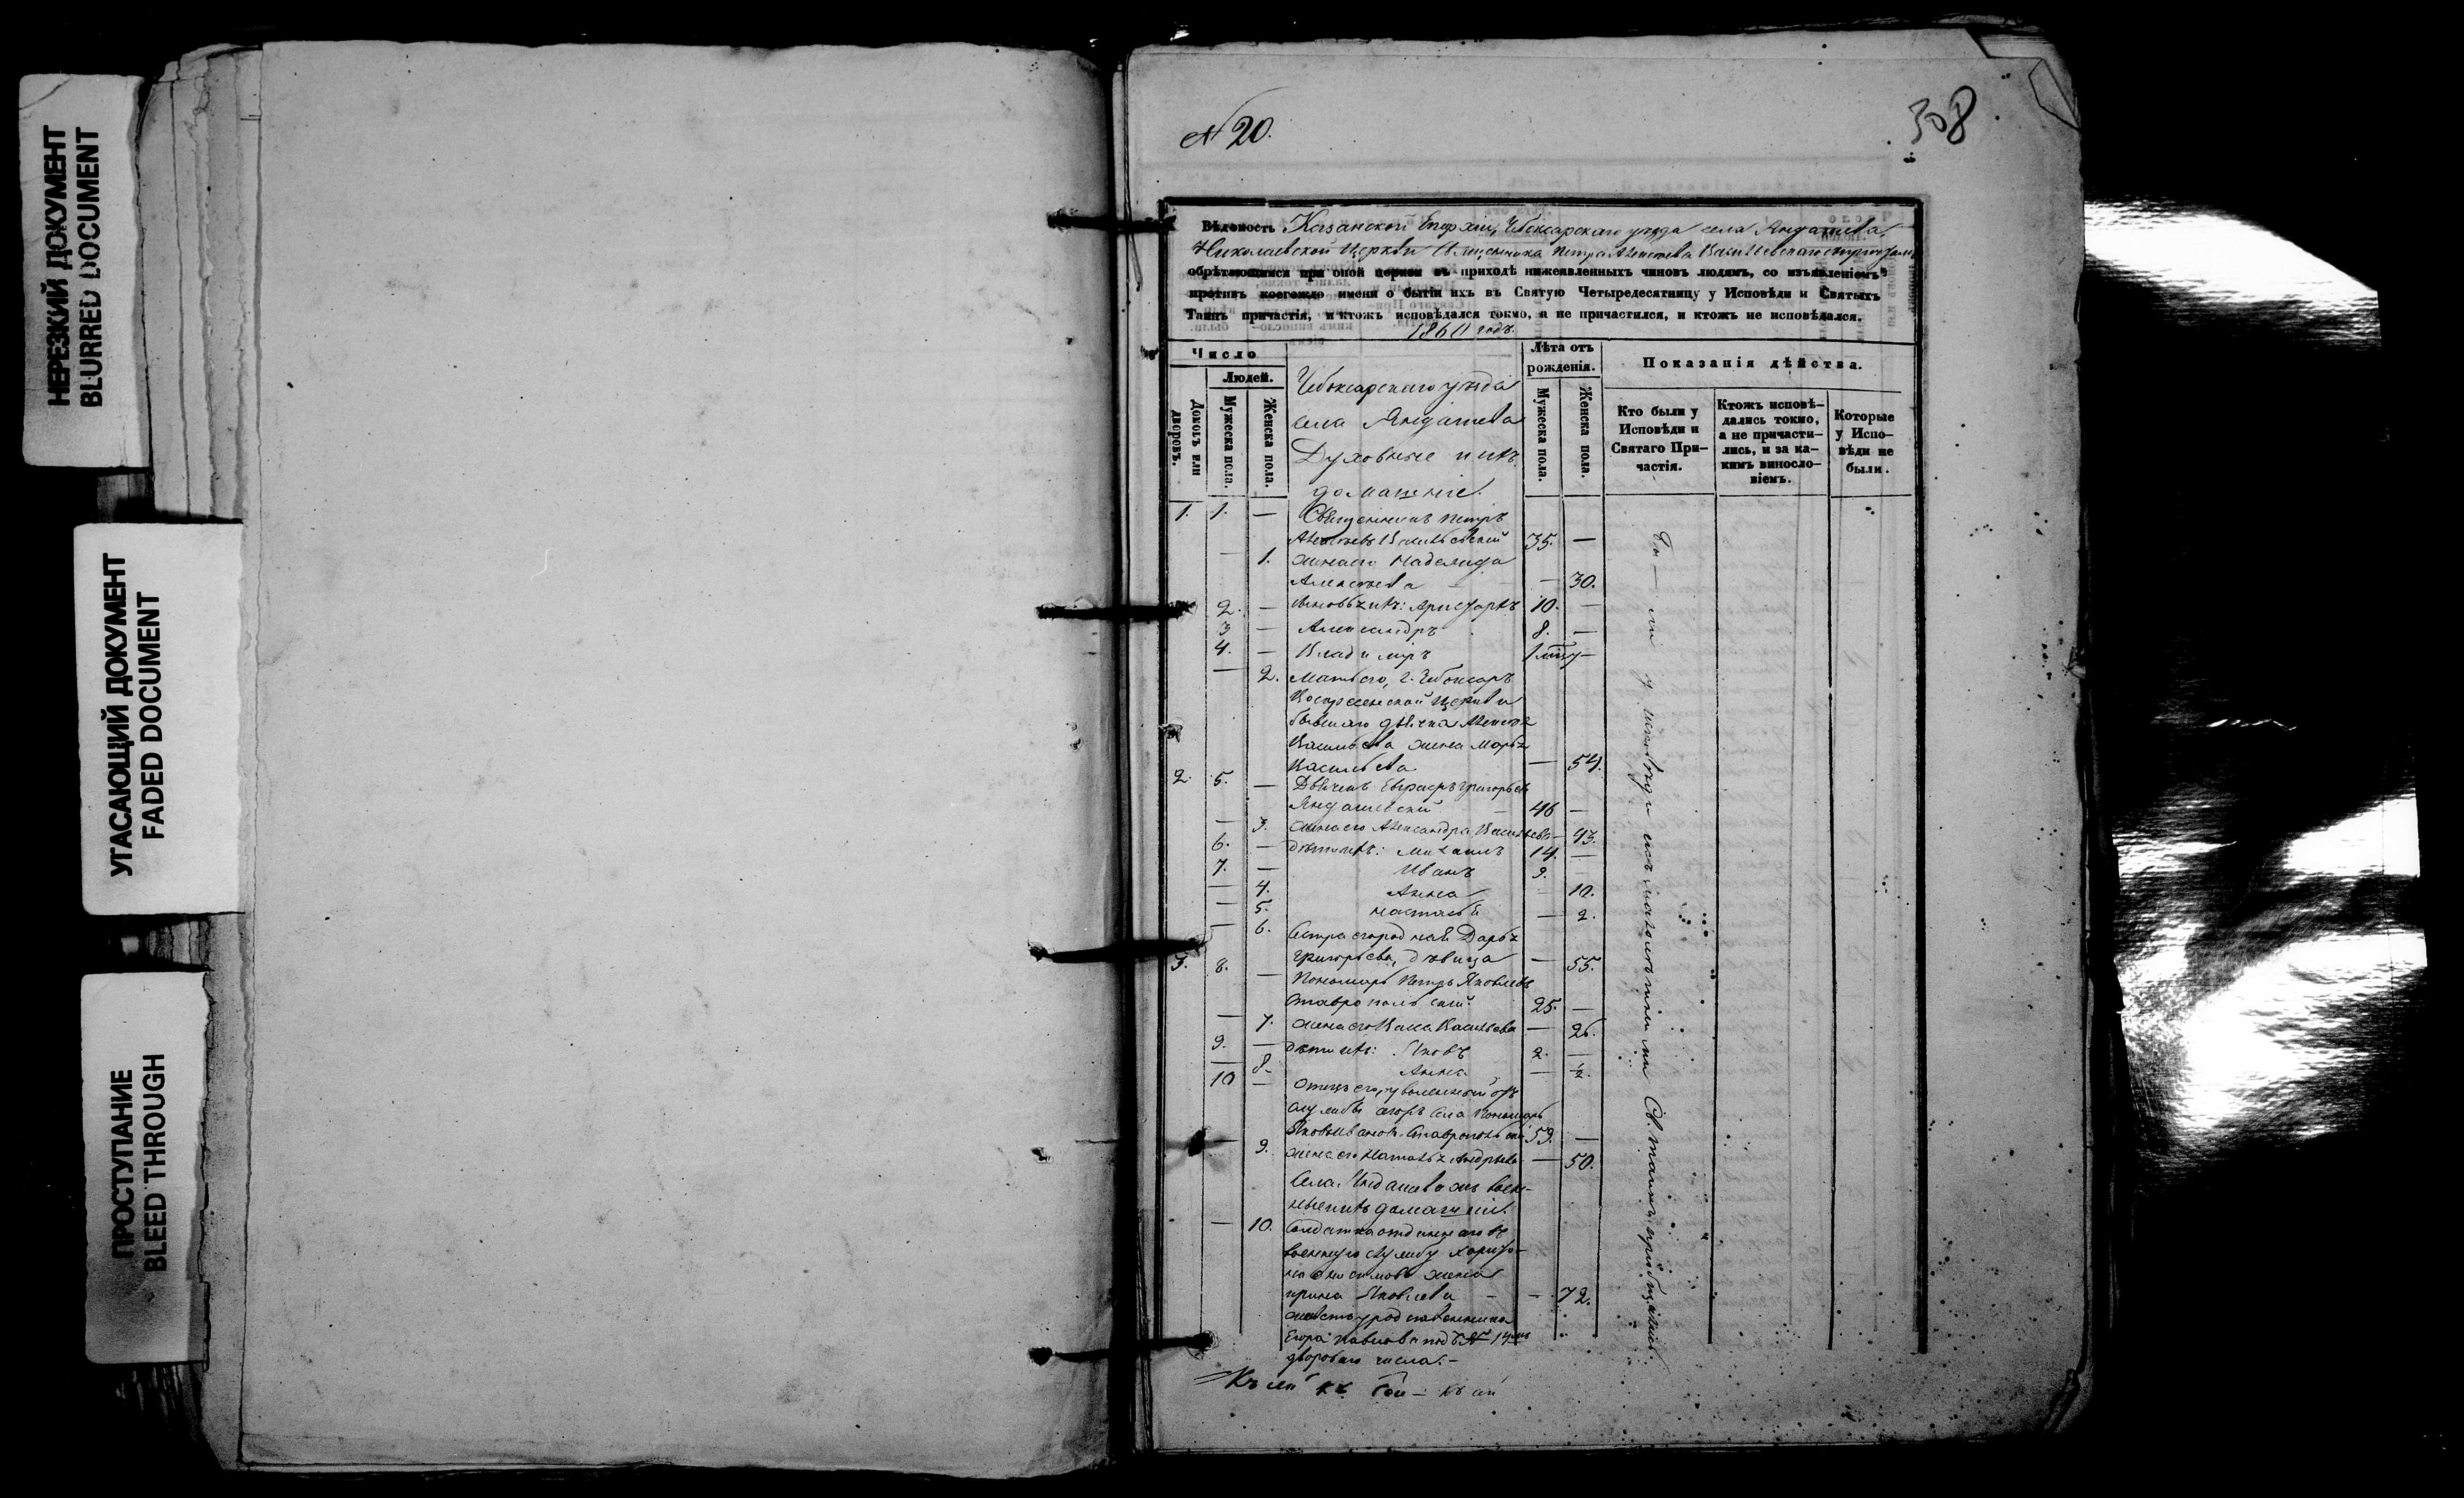 НЕРЕЗКИЙ ДОКУМЕНТ
BLURRED DOCUMENT
УГАСАЮЩИЙ ДОКУМЕНТ
FADED DOCUMENT
ПРОСТУПАНИЕ
BLEED THROUGH
№ 20.
308
Вѣдомость Казанской Епархіи, Чебоксарскаго уѣзда села Яндашева,
Николаевской Церкви Священника Петра Алексѣева Васильевскаго
обрѣтающимся при оной церкви въ приходѣ нижеявленныхъ чиновъ людямъ, со изъявленіемъ
противъ коегождо имени о бытіи ихъ въ Святую Четыредесятницу у Исповѣди и Святыхъ
Таинъ причастія, и ктожъ исповѣдался токмо, а не причастился, и ктожъ не исповѣдался.
1860 годъ.
Число
Людей.
Домовъ или дворовъ.
Мужеска пола.
Женска пола.
Чебоксарскаго уѣзда
села Яндашева
Духовные и ихъ
домашніе.
Лѣта отъ рожденія.
Мужеска пола.
Женска пола.
Показанія дѣйства.
Кто были у Исповѣди и Святаго Причастія.
Ктожъ исповѣдались токмо, а не причастились, и за какимъ винословіемъ.
Которые у Исповѣди не были.
1. 1. — Священникъ Петръ
Алексѣевъ Васильевскій 35. —
— 1. жена его Надежда
Алексѣева — 30.
2. — сыновья ихъ: Аристархъ 10. —
3 — Александръ 8. —
4. — Владиміръ 1
— 2. Мать его, г. Чебоксаръ
Воскресенской Церкви
бывшаго дьячка Алексѣя
Васильева жена Марья
Васильева — 54.
2. 5. — Дьячекъ Евграфъ Григорьевъ
Яндашевскій 46 —
— 3. жена его Александра Васильева — 43.
6. — дѣти ихъ: Михаилъ 14. —
7. — Иванъ 9.
— 4. Анна — 10.
— 5. Настасья — 2.
— 6. Сестра его родная Дарья
Григорьева, дѣвица — 55.
3. 8. — Пономарь Петръ Яковлевъ
Ставропольскій 25. —
— 7. жена его Васильева — 26.
9. — дѣти ихъ: Яковъ 2. —
— 8. Анна — ½.
10 — Отецъ его, уволенный отъ
службы сегожъ села Пономарь
Яковъ Ивановъ Ставропольскій 59. —
9. жена его Наталья Андреева — 50.
Села Яндашева жъ воен-
ные и ихъ домашніе.
— 10. Солдатка отданнаго въ
военную службу Харито-
на жена
Ирина Яковлева — — 72.
Егора Павлова подъ № 14
дворового числа. —
Бы — ли у исповѣди и съ малолѣтними Св. таинъ